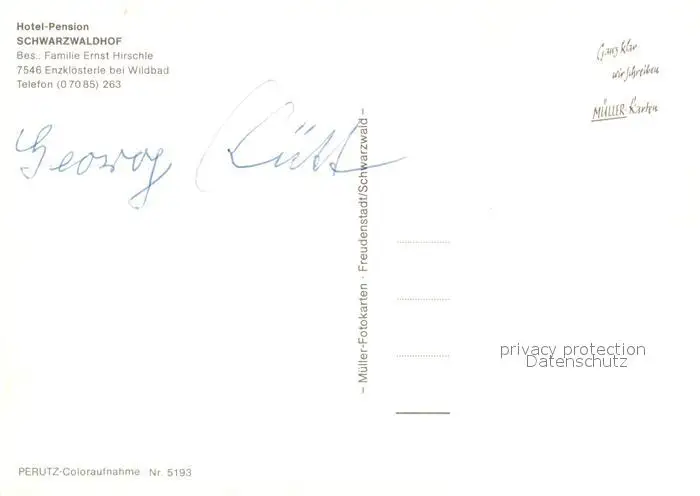 Hotel-Pension
SCHWARZWALDHOF
Bes.: Familie Ernst Hirschle
7546 Enzklösterle bei Wildbad
Telefon (0 70 85) 263
Ganz klar
wir schreiben
MÜLLER-Karten
Georg
– Müller-Fotokarten · Freudenstadt/Schwarzwald –
privacy protection
Datenschutz
PERUTZ-Coloraufnahme Nr. 5193